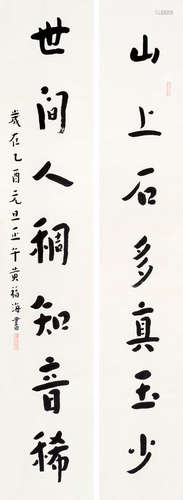 山上石多真玉少
世间人稠知音稀
歲在乙酉元旦正午黄福海書